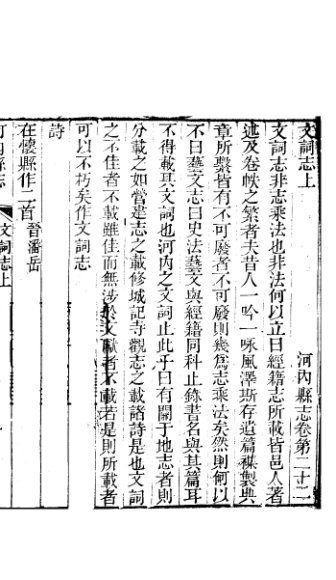 河內縣志卷第二十二
文詞志上
文詞志非志乘法也非法何以立曰經籍志所載皆邑人著
述及卷帙之繁者夫昔人一吟一咏風澤斯存遺篇襍製典
章所繫皆有不可廢者不可廢則幾爲志乘法矣然則何以
不曰藝文志曰史法藝文與經籍同科止錄書名與其篇耳
不得載其文詞也河內之文詞止此乎曰有關于地志者則
分載之如營建志之載修城記寺觀志之載諸詩是也文詞
之不佳者不載雖佳而無涉於文獻者不載若是則所載者
可以不朽矣作文詞志
詩
在懷縣作二首 晉潘岳
河內縣志
文詞志上